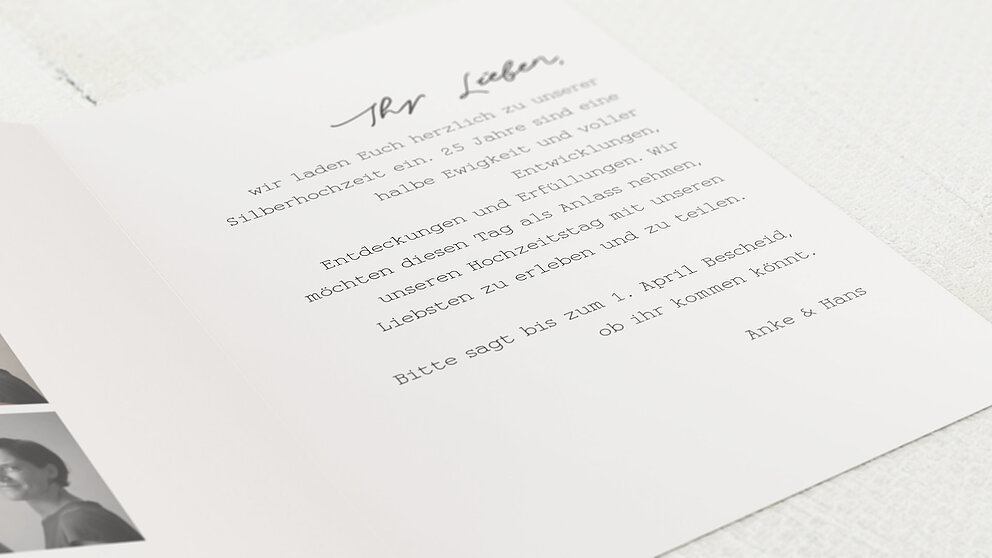 Ihr Lieben,
wir laden Euch herzlich zu unserer
Silberhochzeit ein. 25 Jahre sind eine
halbe Ewigkeit und voller
Entwicklungen,
Entdeckungen und Erfüllungen. Wir
möchten diesen Tag als Anlass nehmen,
unseren Hochzeitstag mit unseren
Liebsten zu erleben und zu teilen.
Bitte sagt bis zum 1. April Bescheid,
ob ihr kommen könnt.
Anke & Hans